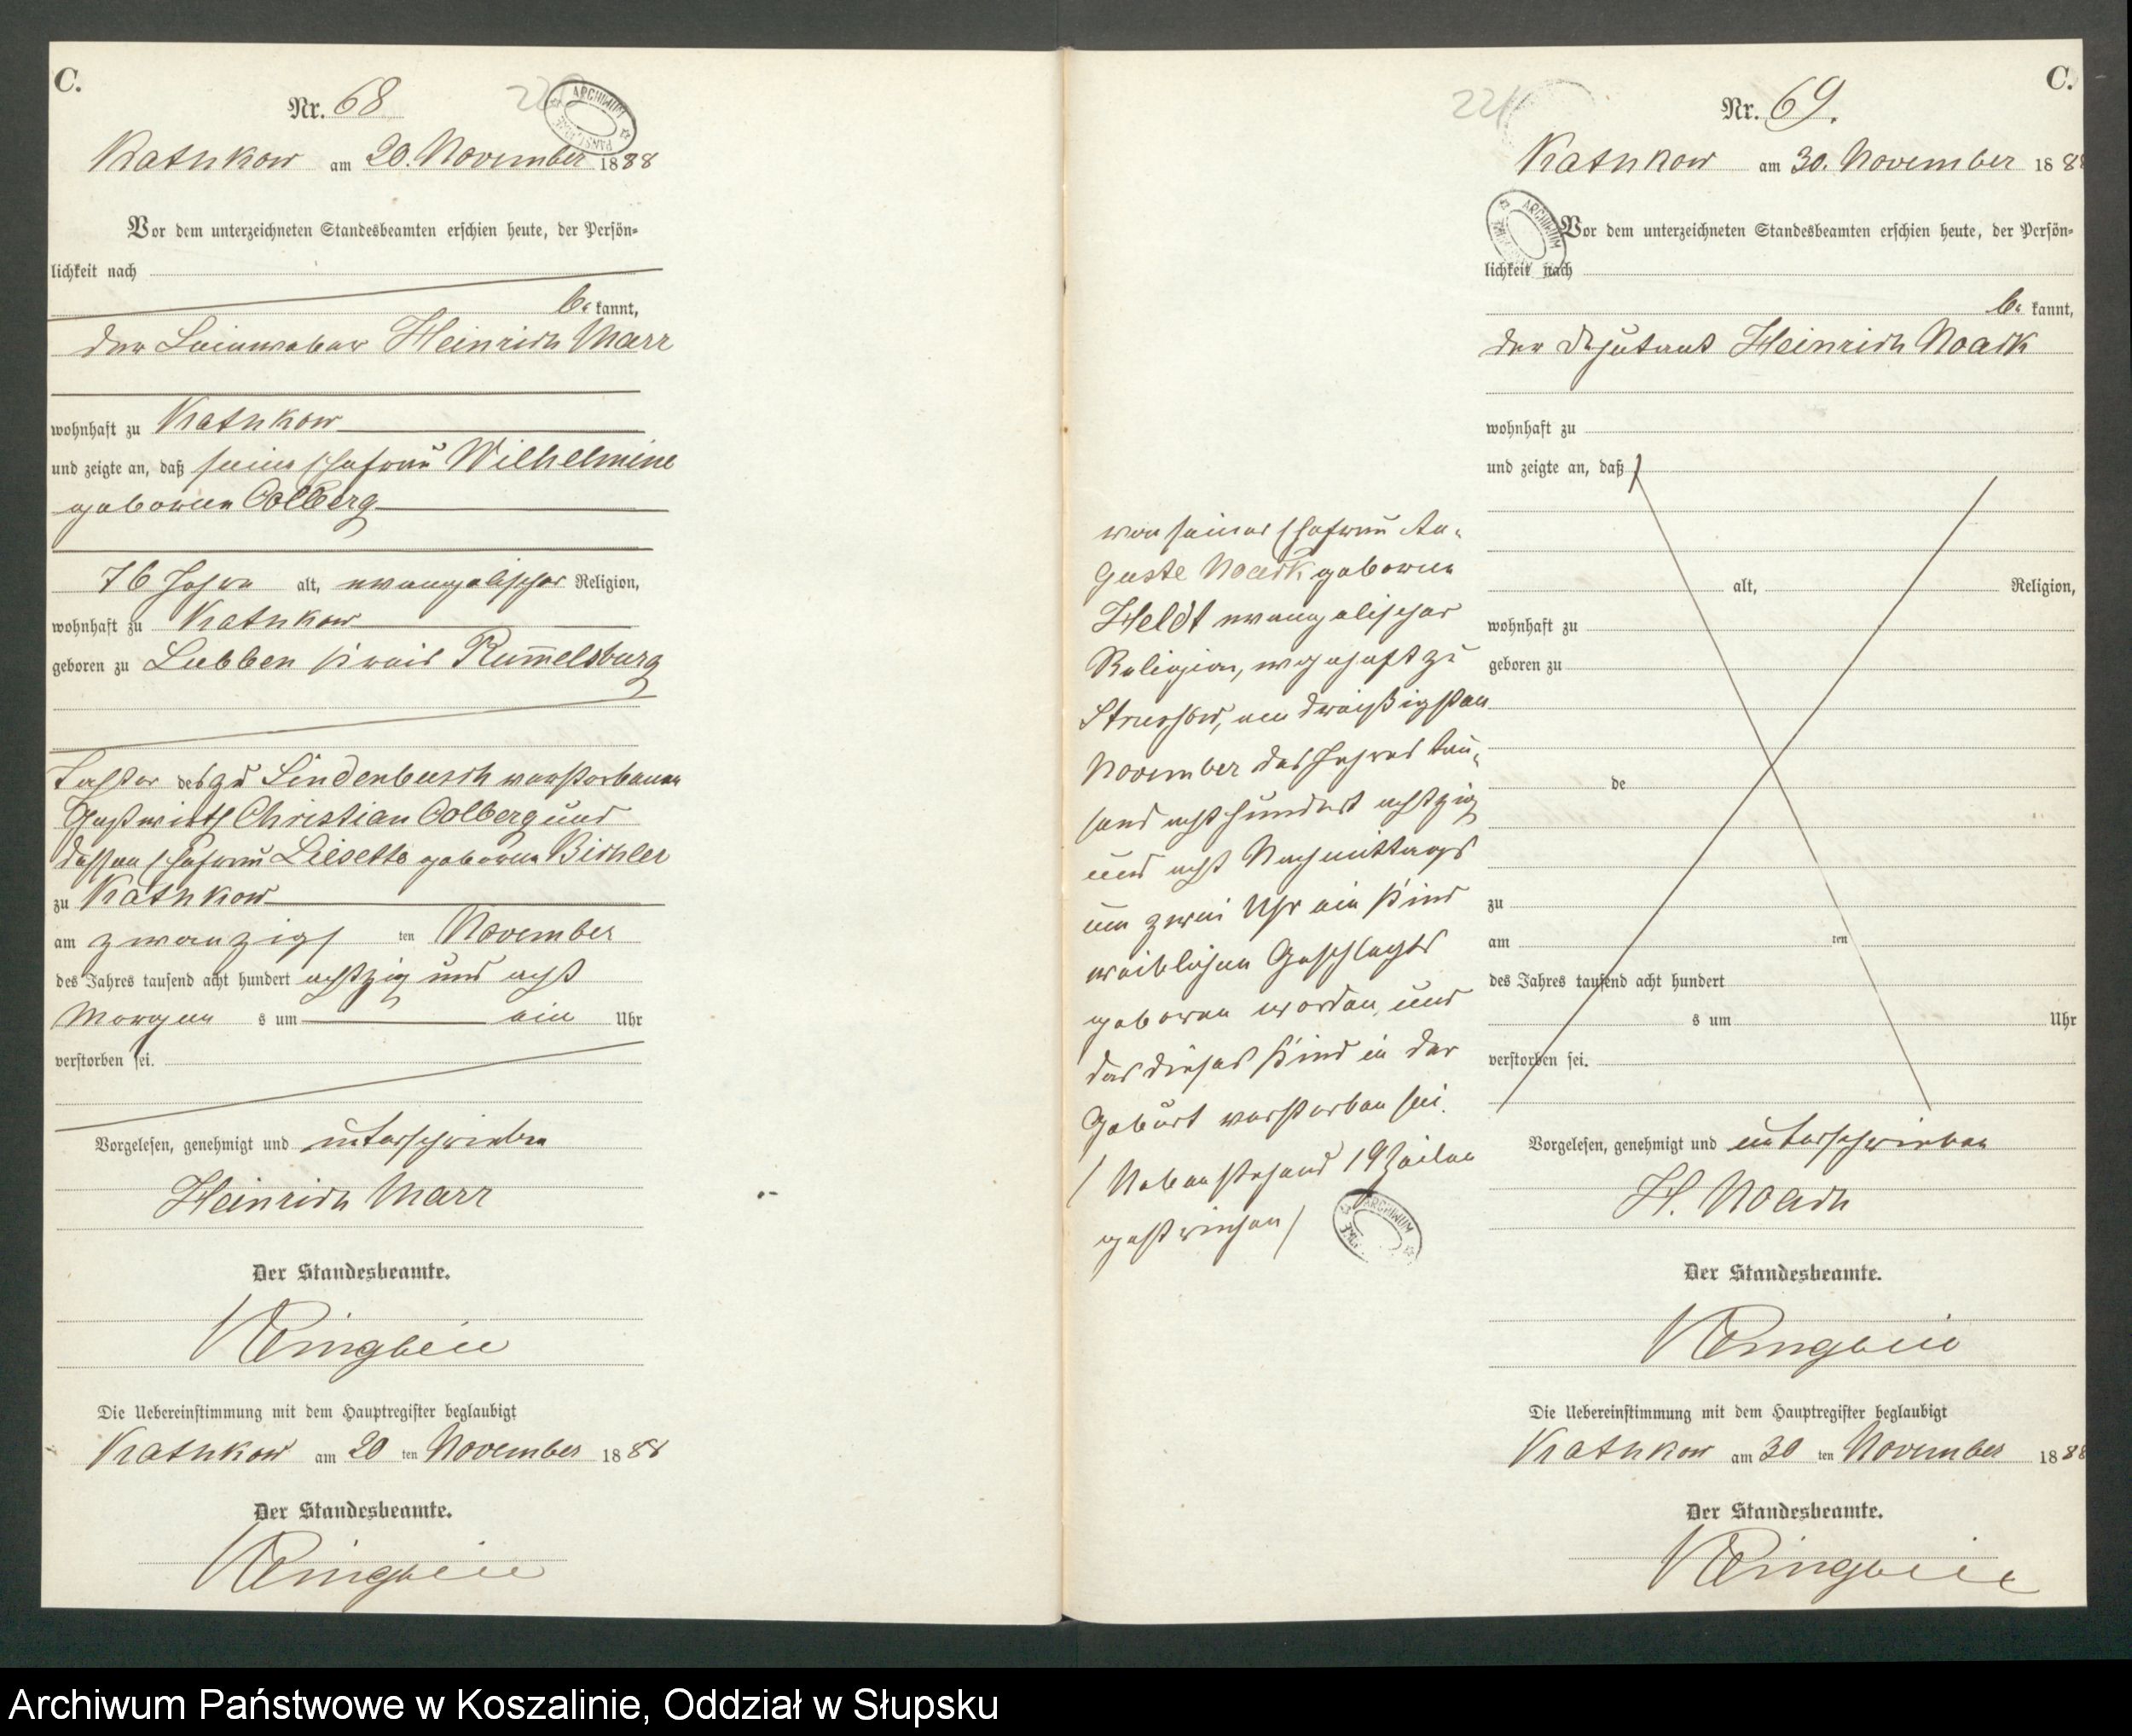 C.
Nr. 68
Kathkow am 20. November 1888
Vor dem unterzeichneten Standesbeamten erschien heute, der Persön-
lichkeit nach
be kannt,
der Leineweber Heinrich Marr
wohnhaft zu Kathkow
und zeigte an, daß seine Ehefrau Wilhelmine
geborene Colberg
76 Jahre alt, evangelischer Religion,
wohnhaft zu Kathkow
geboren zu Lubben Kreis Rummelsburg
Tochter des zu Lindenbusch verstorbenen
Gastwirth Christian Colberg und
dessen Ehefrau Liesette geborene Bichler
zu Kathkow
am zwanzigs ten November
des Jahres tausend acht hundert achtzig und acht
Morgen s um ein Uhr
verstorben sei.
Vorgelesen, genehmigt und unterschrieben
Heinrich Marr
Der Standesbeamte.
Ringbein
Die Uebereinstimmung mit dem Hauptregister beglaubigt
Kathkow am 20 ten November 1888
Der Standesbeamte.
Ringbein
C.
Nr. 69.
Kathkow am 30. November 188
Vor dem unterzeichneten Standesbeamten erschien heute, der Persön-
lichkeit nach
be kannt,
der Deputant Heinrich Noack
wohnhaft zu
und zeigte an, daß
alt, Religion,
wohnhaft zu
geboren zu
de
zu
am ten
des Jahres tausend acht hundert
s um Uhr
verstorben sei.
von seiner Ehefrau Au-
guste Noack geborene
Heldt evangelischer
Religion, wohnhaft zu
Strussow, am dreißigsten
November des Jahres tau-
send acht hundert achtzig
und acht Nachmittags
um zwei Uhr ein Kind
weiblichen Geschlechts
geboren worden, und
das dieses Kind in der
Geburt verstorben sei.
/ Nebenstehend 19 Zeilen
gestrichen /
Vorgelesen, genehmigt und unterschrieben
H. Noack
Der Standesbeamte.
Ringbein
Die Uebereinstimmung mit dem Hauptregister beglaubigt
Kathkow am 30 ten November 1888
Der Standesbeamte.
Ringbein
ARCHIWUM
Archiwum Państwowe w Koszalinie, Oddział w Słupsku